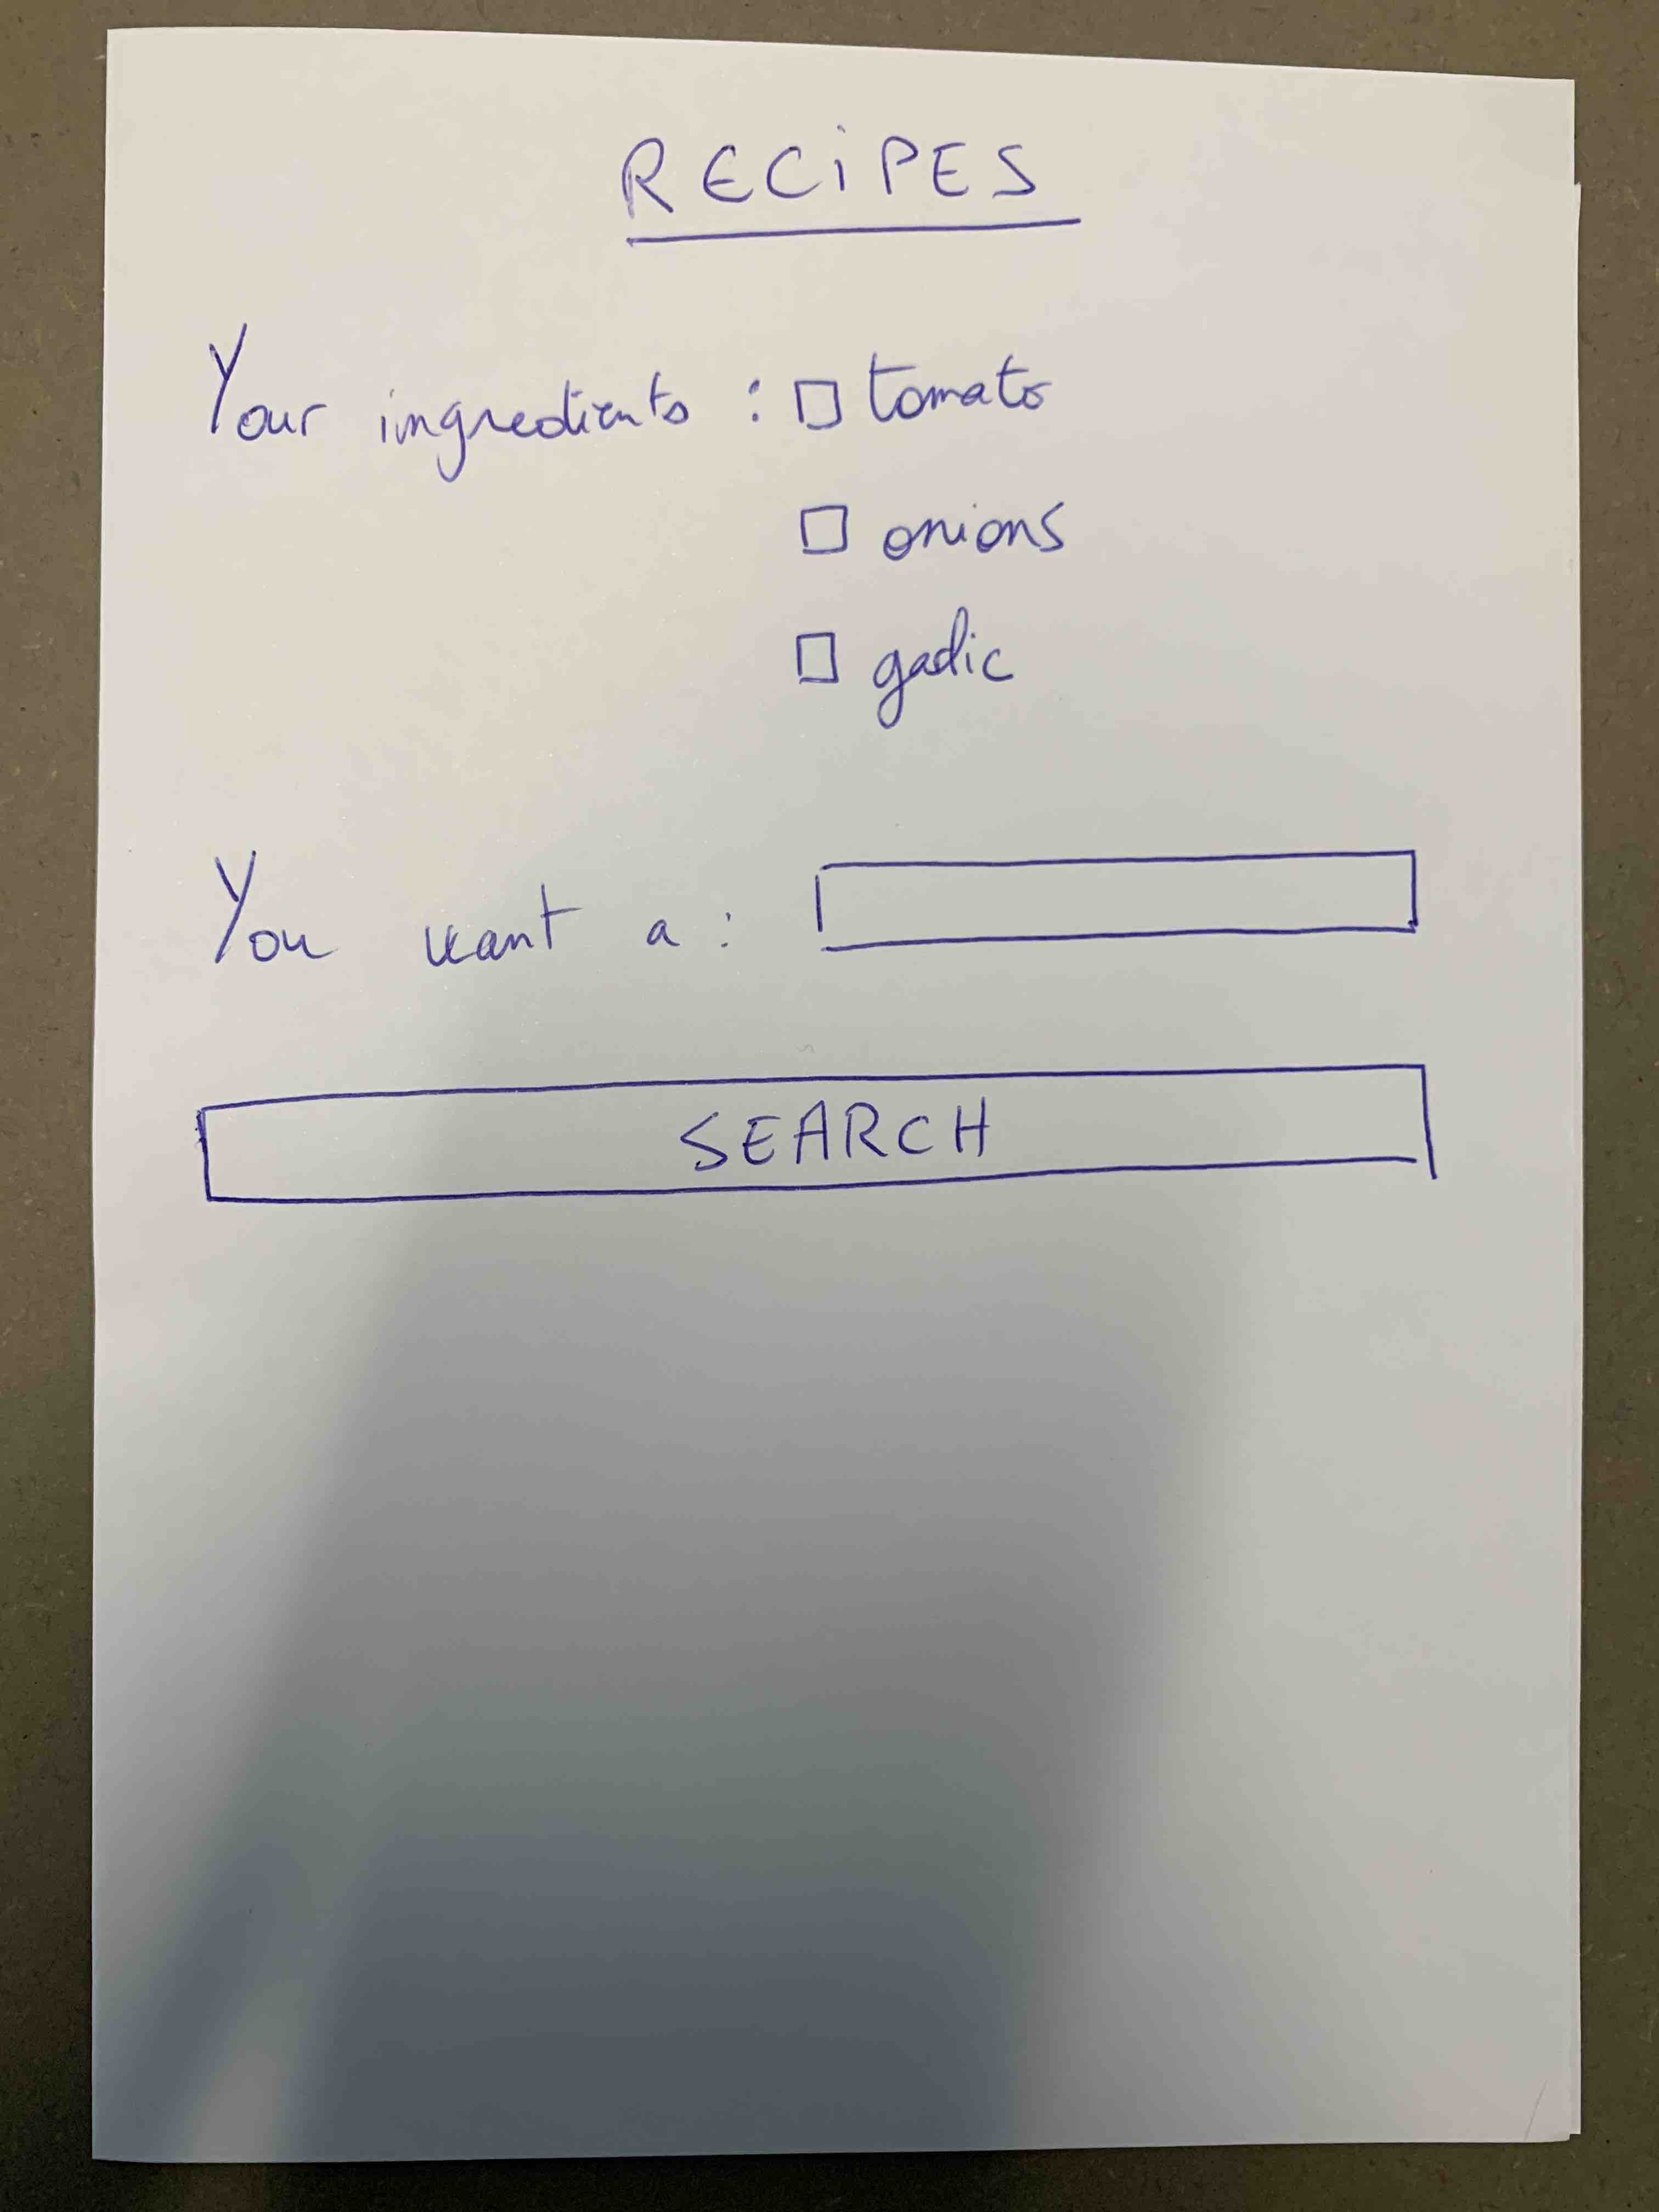 RECIPES
Your ingredients : ☐ tomato
☐ onions
☐ garlic
You want a :
SEARCH